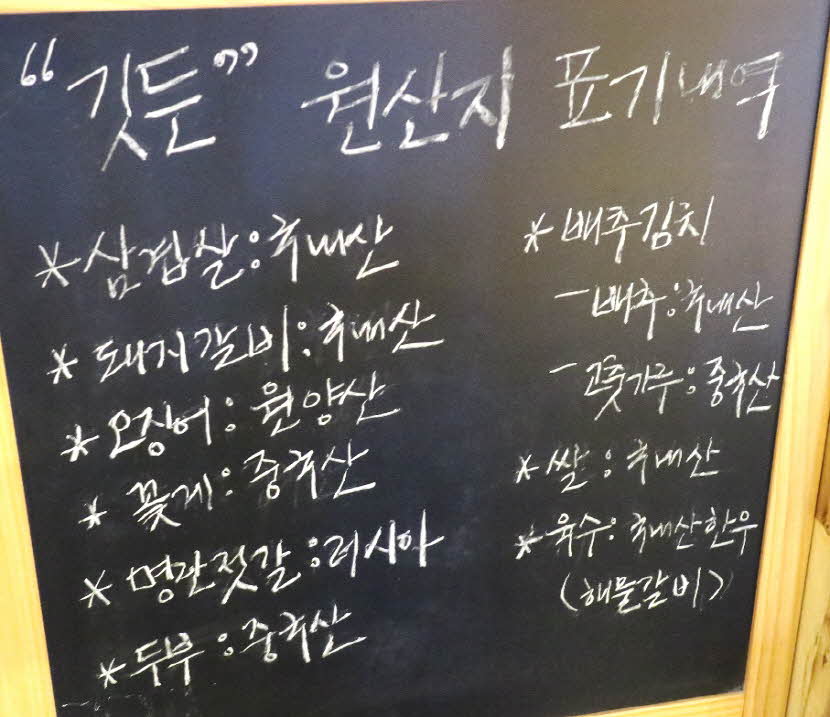 “깃든” 원산지 표기내역
* 삼겹살 : 국내산
* 돼지갈비 : 국내산
* 오징어 : 원양산
* 꽃게 : 중국산
* 명란젓갈 : 러시아
* 두부 : 중국산
* 배추김치
- 배추 : 국내산
- 고춧가루 : 중국산
* 쌀 : 국내산
* 육수 : 국내산한우
(해물갈비)